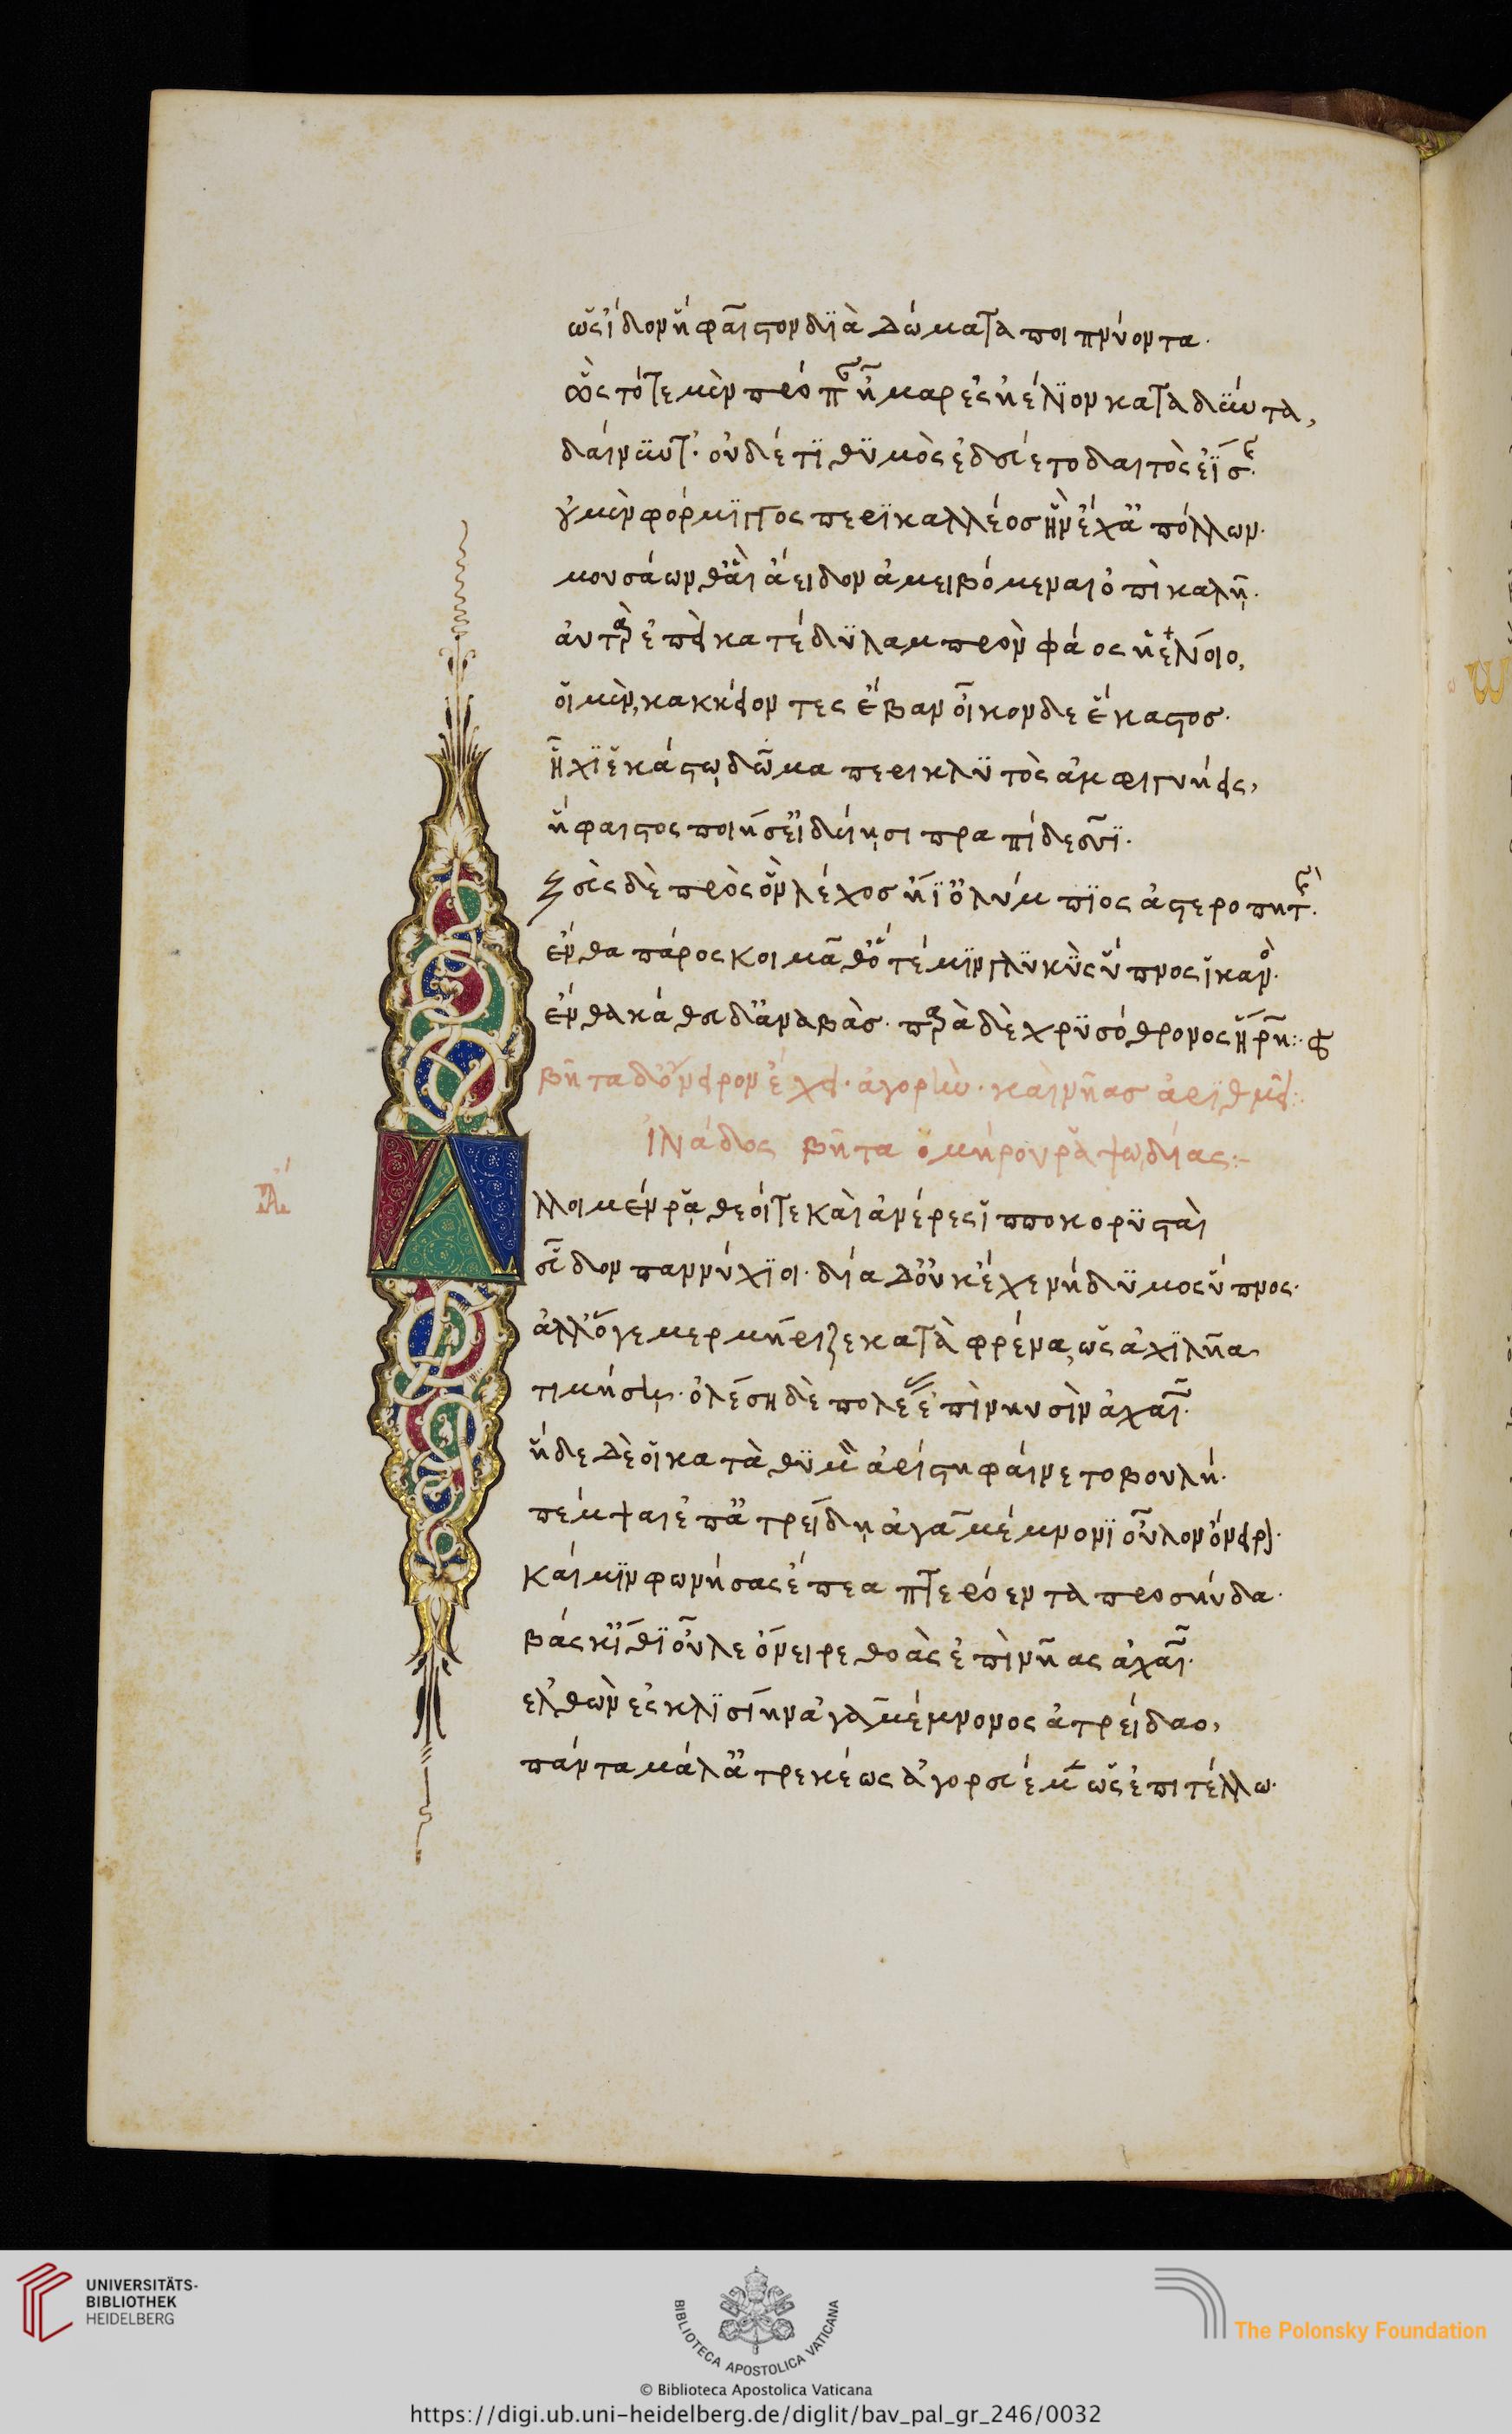 ὡς ἴδον ἥφαιστον διὰ δώματα ποιπνύοντα.
ὣς τότε μὲν πρόπαν ἦμαρ ἐς ἠέλιον καταδύντα,
δαίνυντ'. οὐδέ τι θυμὸς ἐδεύετο δαιτὸς ἐίσης.
οὐ μὲν φόρμιγγος περικαλλέος ἣν ἔχ' ἀπόλλων.
μουσάων θ' αἳ ἄειδον ἀμειβόμεναι ὀπὶ καλῇ.
αὐτὰρ ἐπεὶ κατέδυ λαμπρὸν φάος ἠελίοιο,
οἱ μὲν, κακκείοντες ἔβαν οἶκον δε ἕκαστος.
ἧχι ἑκάστῳ δῶμα περικλυτὸς ἀμφιγυήεις,
ἥφαιστος ποίησ' εἰδυίῃσι πραπίδεσσι.
ζεὺς δὲ πρὸς ὃν λέχος ἤϊ' ὀλύμπιος ἀστεροπητής.
ἔνθα πάρος κοιμᾶθ' ὅτέ μιν γλυκὺς ὕπνος ἱκάνοι.
ἔνθα καθεῦδ' ἀναβάς. παρὰ δὲ χρυσόθρονος ἥρη:
βῆτα δ' ὄνειρον ἔχει. ἀγορὴν. καὶ νῆας ἀριθμεῖ:
ἰλιάδος βῆτα ὁμήρου ῥαψῳδίας:
Α
ἄλ
λλοι μέν ῥα θεοί τε καὶ ἀνέρες ἱπποκορυσταὶ
εὗδον παννύχιοι. δία δ' οὐκ ἔχε νήδυμος ὕπνος.
ἀλλ' ὅγε μερμήριζε κατὰ φρένα, ὡς ἀχιλῆα
τιμήσῃ. ὀλέσῃ δὲ πολέας ἐπὶ νηυσὶν ἀχαιῶν.
ἥδε δέ οἱ κατὰ θυμὸν ἀρίστη φαίνετο βουλή.
πέμψαι ἐπ' ἀτρείδῃ ἀγαμέμνονι οὖλον ὄνειρον.
καί μιν φωνήσας ἔπεα πτερόεντα προσηύδα.
βάσκ' ἴθι οὖλε ὄνειρε θοὰς ἐπὶ νῆας ἀχαιῶν.
ἐλθὼν ἐς κλισίην ἀγαμέμνονος ἀτρείδαο,
πάντα μάλ' ἀτρεκέως ἀγορευέμεν ὡς ἐπιτέλλω.
UNIVERSITÄTS-
BIBLIOTHEK
HEIDELBERG
BIBLIOTECA APOSTOLICA VATICANA
The Polonsky Foundation
© Biblioteca Apostolica Vaticana
https://digi.ub.uni-heidelberg.de/diglit/bav_pal_gr_246/0032